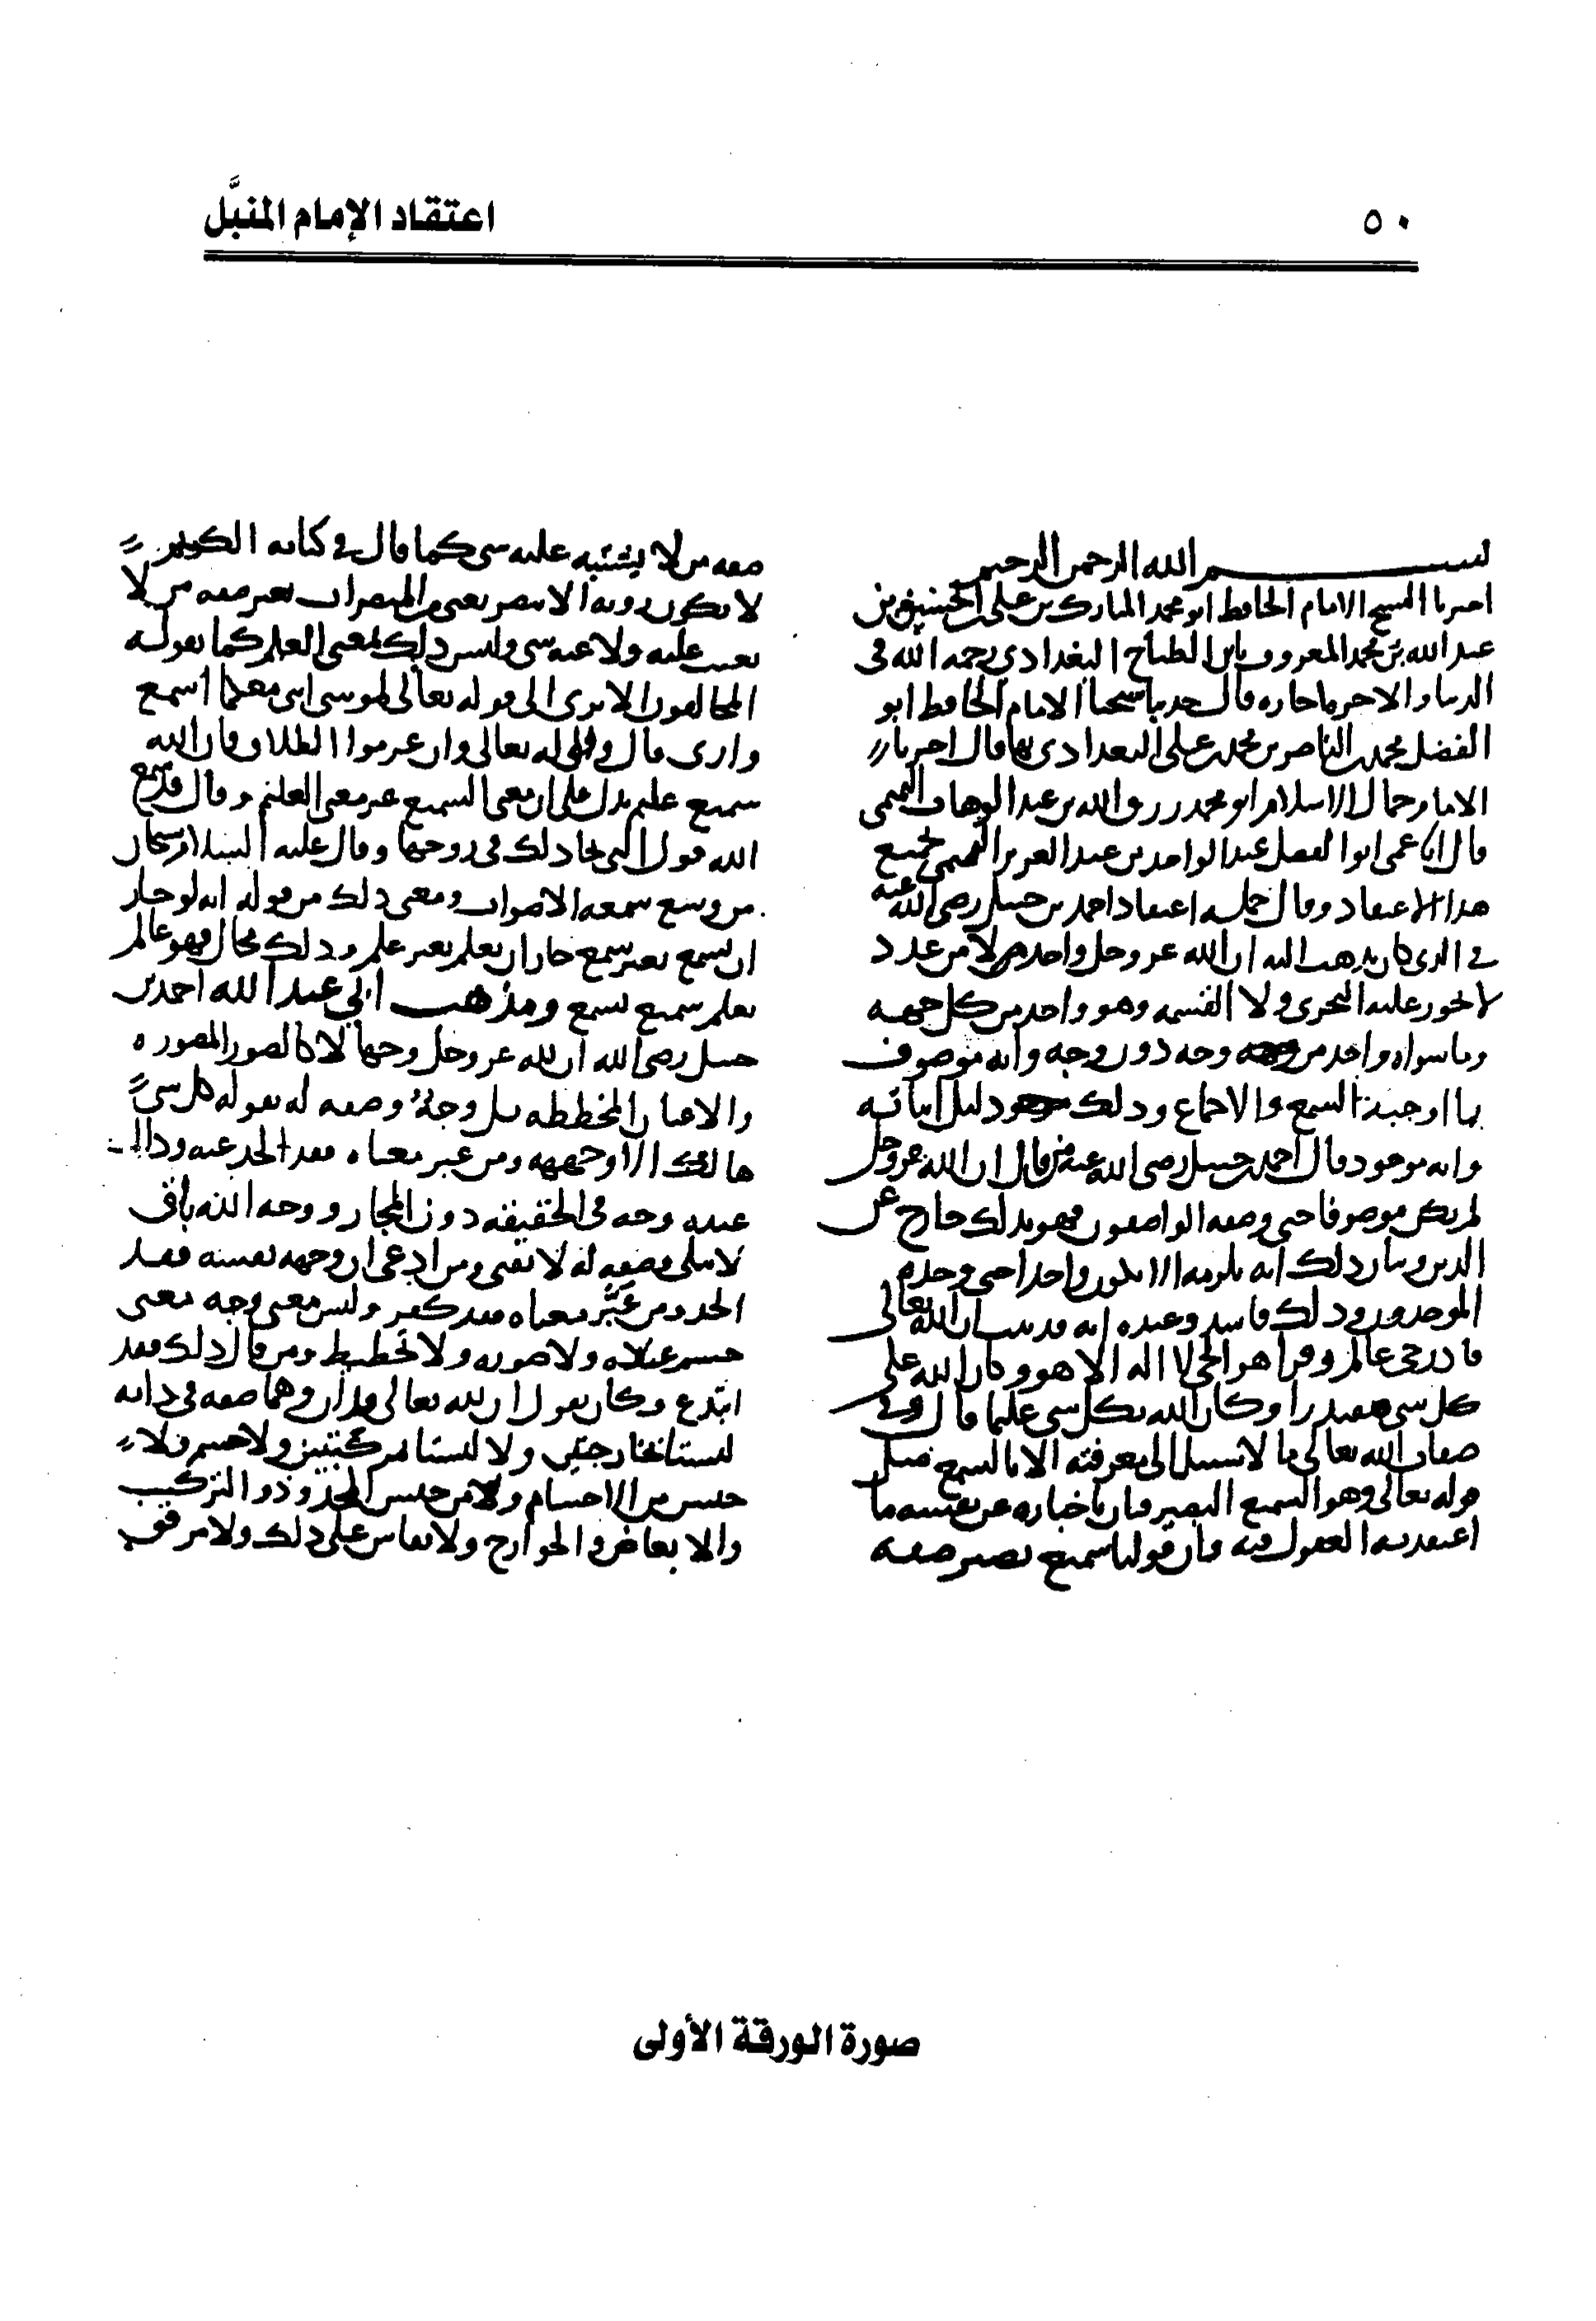 ٥٠
اعتقاد الإمام المنبَّل
بسم الله الرحمن الرحيم
اخبرنا الشيخ الامام الحافظ ابو محمد المبارك بن على بن الحسين بن
عبد الله بن محمد المعروف بابن الطباخ البغدادي رحمه الله فى
الدنيا والاخره اجازه قال حدثنا شيخنا الامام الحافظ ابو
الفضل محمد بن الناصر بن محمد بن على البغدادى بها قال اخبرنا
الامام جمال الاسلام ابو محمد رزق الله بن عبد الوهاب التميمى
قال انا عمى ابو الفضل عبد الواحد بن عبد العزيز التميمى بجميع
هذا الاعتقاد وقال جملة اعتقاد احمد بن حنبل رضى الله عنه
الذى كان يذهب اليه ان الله عز وجل واحد لا من عدد
لا يجوز عليه التجزى ولا القسمه وهو واحد من كل جهه
وما سواه واحد من وجه دون وجه وانه موصوف
بما اوجبه السمع والاجماع وذلك دليل اثباته
وانه موجود قال احمد بن حنبل رضى الله عنه من قال ان الله عز وجل
لم يكن موصوفا حتى وصفه الواصفون فهو بذلك خارج عن
الدين وبيان ذلك انه يلزمه الا يكون واحدا حتى وحده
الموحدون وذلك فاسد وعنده انه قد ثبت ان الله تعالى
قادر حى عالم وقرا هو الحي لا اله الا هو وكان الله على
كل شى مقتدرا وكان الله بكل شى عليما قال وفى
صفات الله تعالى ما لا سبيل الى معرفته الا بالسمع مثل
قوله تعالى وهو السميع البصير فبان باخباره عن نفسه ما
اعتقدته العقول فيه وان قولنا سميع بصير صفه
صفه من لا يشتبه عليه شى كما قال فى كتابه الكريم
لا تكون رويه الا ببصر يعنى من المبصرات بغير صفه من لا
يغيب عليه ولا عنه شى وليس ذلك بمعنى العلم كما يقوله
المخالفون الا ترى الى قوله تعالى لموسى اننى معكما اسمع
وارى قال وقوله تعالى وان عزموا الطلاق فان الله
سميع عليم يدل على ان معنى السميع غير معنى العليم وقال قد سمع
الله قول التى تجادلك فى زوجها وقال عليه السلام سبحان
من وسع سمعه الاصوات ومعنى ذلك من قوله انه لو جاز
ان يسمع بغير سمع جاز ان يعلم بغير علم وذلك محال فهو عالم
بعلم سميع بسمع ومذهب ابي عبد الله احمد بن
حنبل رضى الله ان لله عز وجل وجها لا كالصور المصوره
والاعيان المخططه بل وجهه وصفه له بقوله كل شى
هالك الا وجهه ومن غير معناه فقد الحد عنه وذلك
عنده وجه فى الحقيقه دون المجاز ووجه الله باق
لا يبلى وصفه له لا تفنى ومن ادعى ان وجهه نفسه فقد
الحد ومن غيَّر معناه فقد كفر وليس معنى وجه معنى
جسم عنده ولا صوره ولا تخطيط ومن قال ذلك فقد
ابتدع وكان يقول ان لله تعالى يدان وهما صفه فى ذاته
ليستا بجارحتين ولا ليستا مركبتين ولا جسم ولا
جنس من الاجسام ولا من جنس المحدود والتركيب
والابعاض والجوارح ولا يقاس على ذلك ولا مرفق
صورة الورقة الأولى